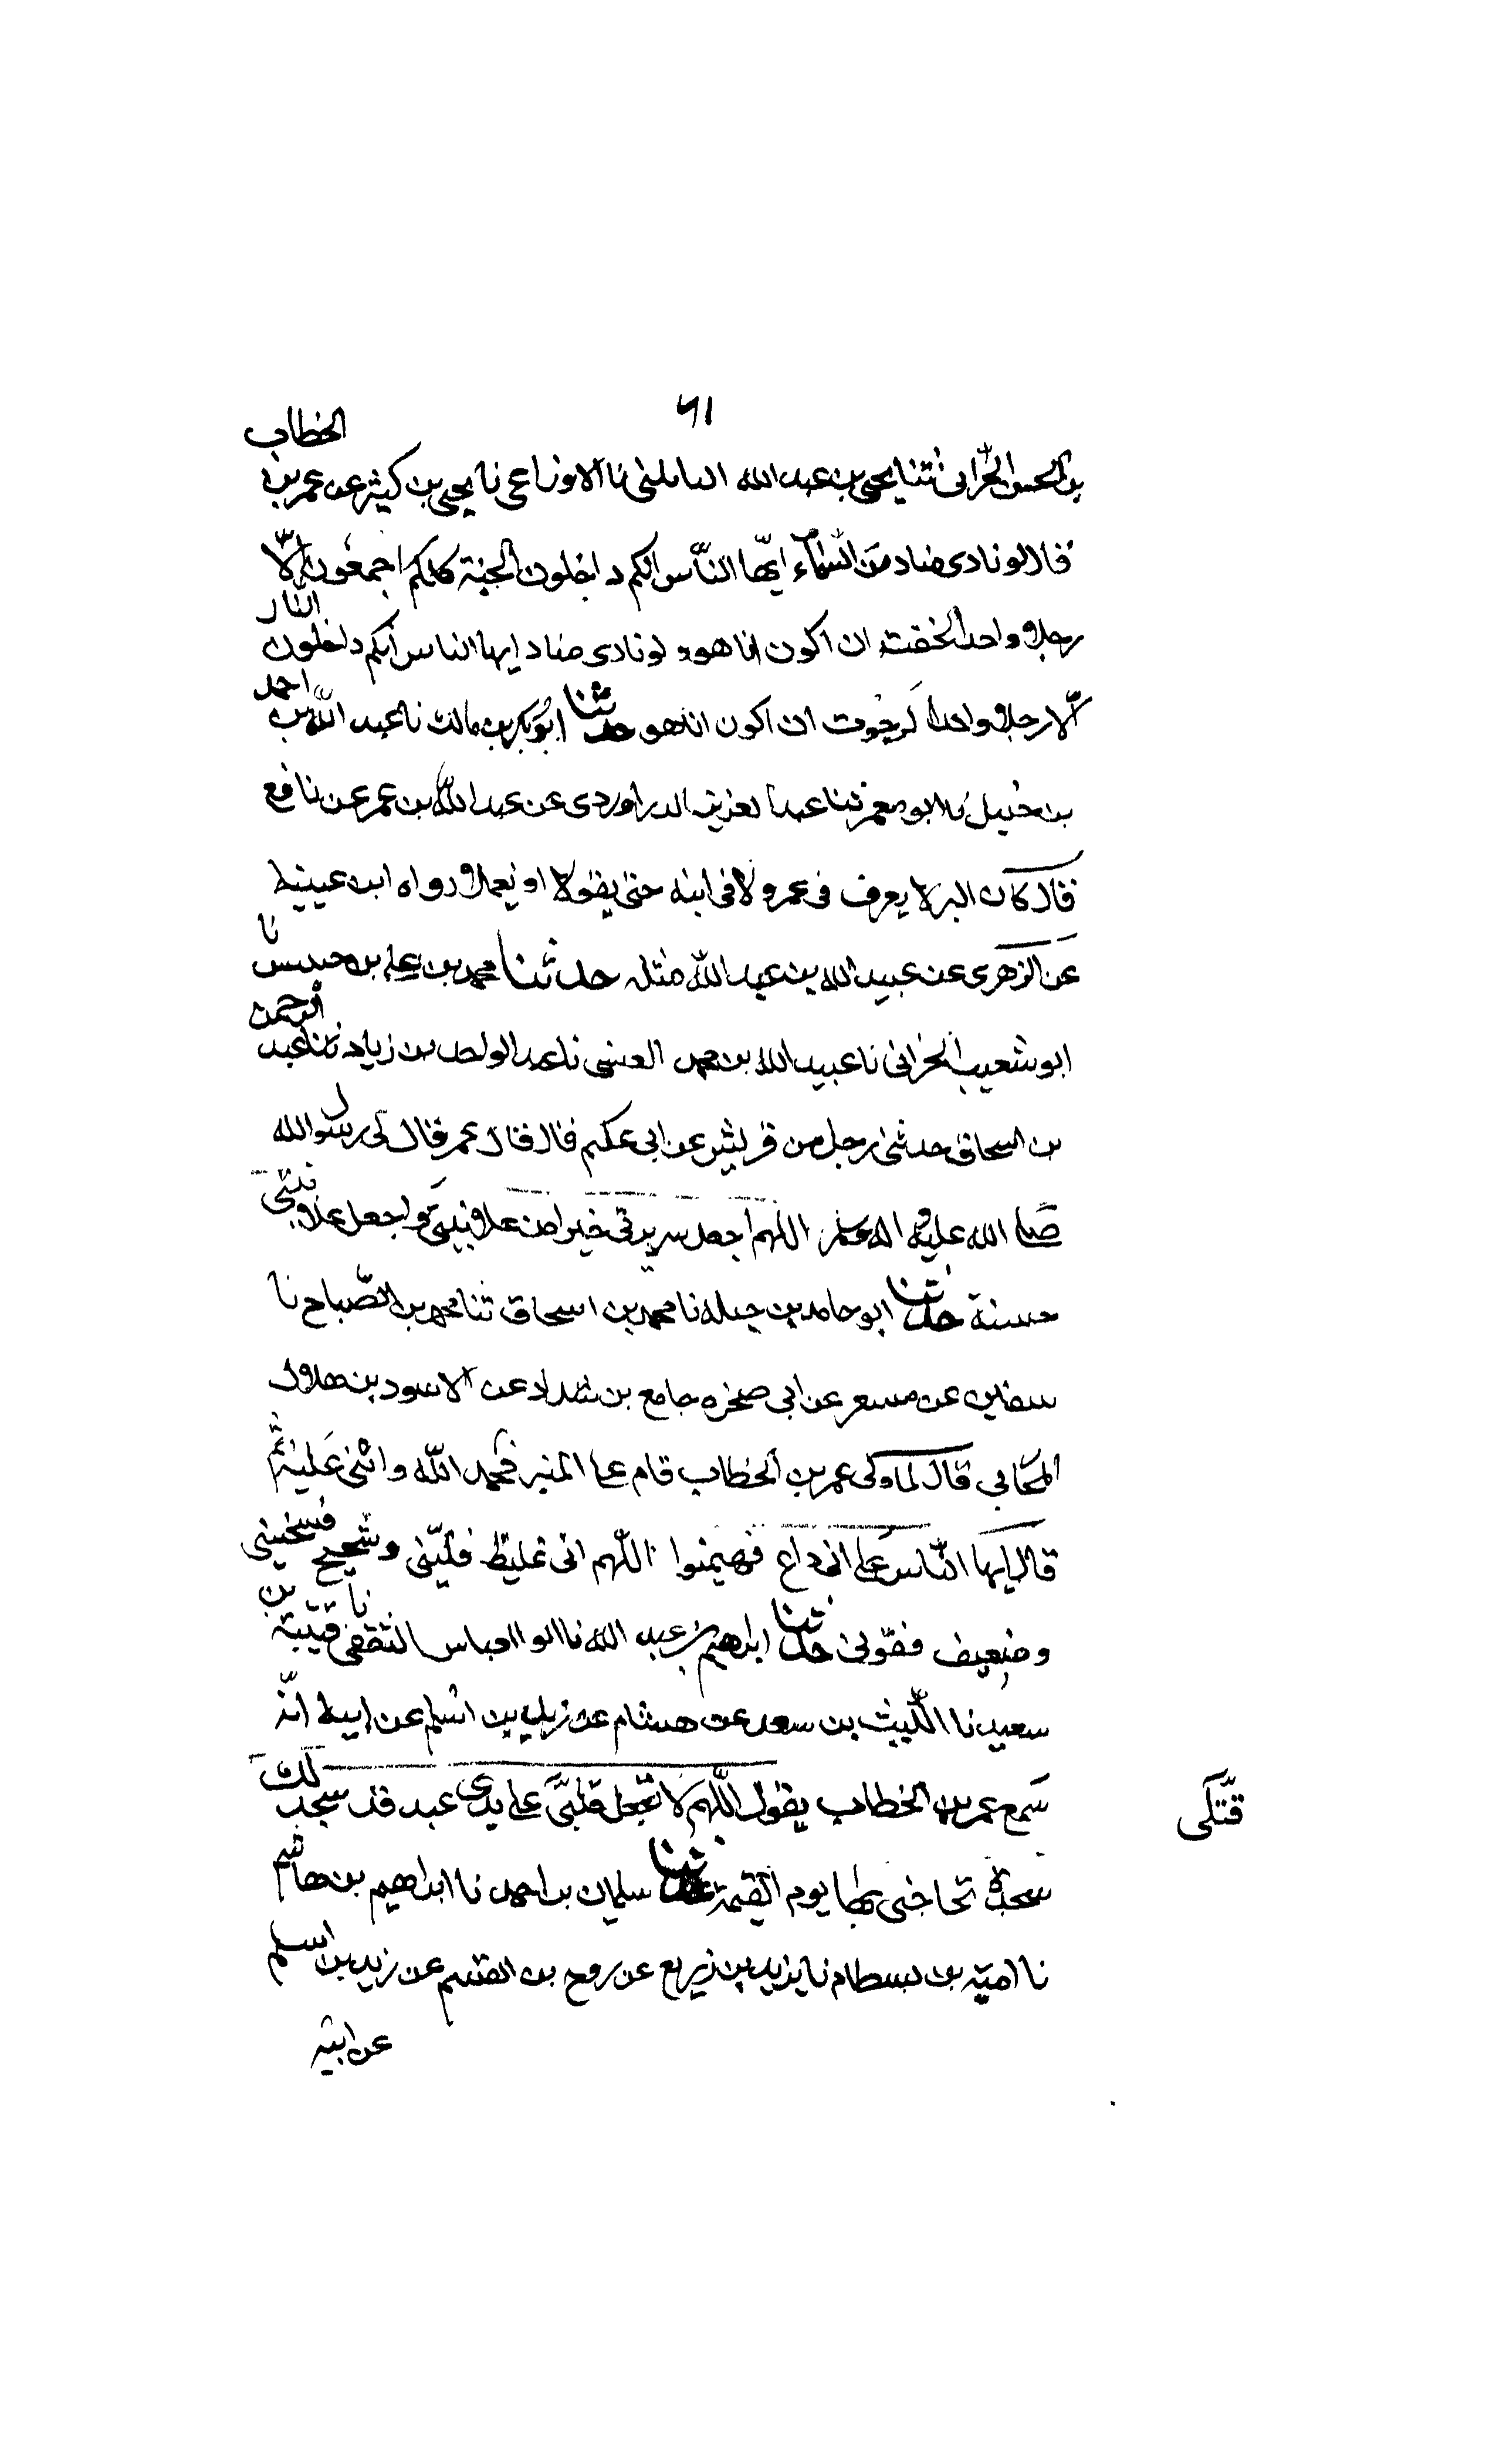 ٦١
بن الحسن الحراني ثنا يحيى بن عبد الله البابلتي نا الاوزاعي نا يحيى بن كثير عن عمر بن الخطاب
قال لو نادى مناد من السَّمآء ايّها النَّاس انكم داخلون الجنة كلكم اجمعون الّا
رجلا واحدا لخفت ان اكون انا هو ولو نادى مناد ايها الناس انكم داخلون النار
الّا رجلا واحدا لرجوت ان اكون انا هو حدثنا ابو بكر بن مالك نا عبد اللّه بن احمد
بن حنبل نا ابو معمر ثنا عبد العزيز الدراوردى عن عبد اللّه بن عمر عن نافع
قال كان البر لا يعرف فى عمر ولا فى ابنه حتى يقولا او يعملا ورواه ابن عيينة
عن الزهرى عن عبيد الله بن عبد اللّه مثله حدثنا محمد بن على بن حبيش نا
ابو شعيب الحرانى نا عبيد الله بن محمد العيشى نا عبد الواحد بن زياد ثنا عبد الرحمن
بن اسحاق حدثنى رجل من قريش عن ابى عكيم قال قال عمر قال لى رسول الله
صلى الله عليه واله وسلم اللهم اجعل سريرتى خيرا من علانيتى واجعل علانيتى
حسنة حدثنا ابو حامد بن جبله نا محمد بن اسحاق ثنا محمد بن الصّباح نا
سفين عن مسعر عن ابى صخره جامع بن شداد عن الاسود بن هلال
المحاربي قال لما ولى عمر بن الخطاب قام على المنبر فحمد اللّه واثنى عليه ثم
قال ايها النّاس على انى داع فهيمنوا اللّهم انى غليظ فليّنى وشحيح فسخينى
وضعيف فقوّنى حدثنا ابراهيم بن عبد الله نا ابو العباس الثقفى نا قتيبة بن
سعيد نا اللّيث بن سعد عن هشام عن زيد بن اسلم عن ابيه انّه
سمع عمر بن الخطاب يقول اللّهم لا تجعل قتلى على يدى عبد قد سجد لك
قتّلَى
سجدة يحاجنى بها يوم القيمة حدثنا سليمان بن احمد نا ابراهيم بن هاشم
نا امية بن بسطام نا يزيد بن زريع عن روح بن القسم عن زيد بن اسلم
عن ابيه